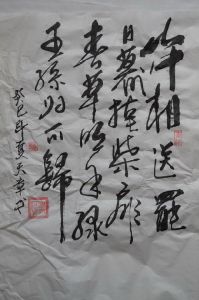 山中相送罷
日暮掩柴扉
春草明年绿
王孫归不歸
癸巳年夏天章书